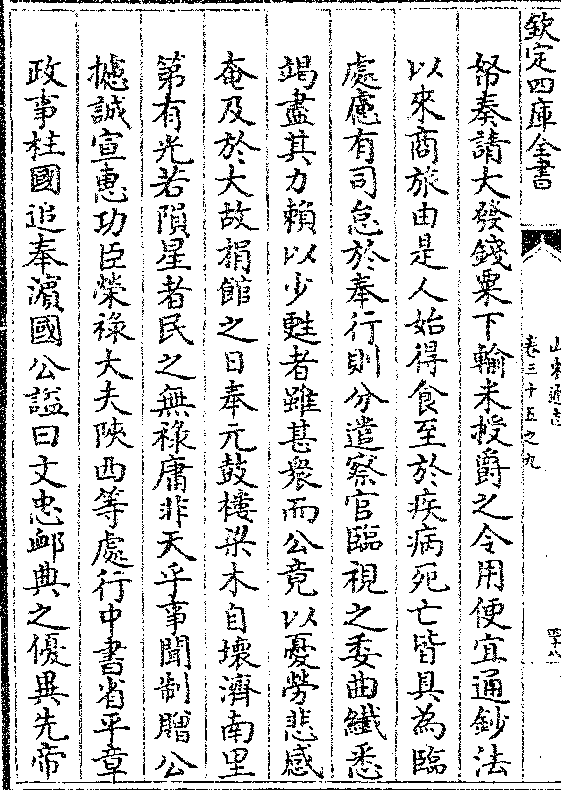 欽定四庫全書
山東通志
卷三十五之九
帑奏請大發錢粟下輸米授爵之令用便宜通鈔法
以來商旅由是人始得食至於疾病死亡皆具為臨
處慮有司怠於奉行則分遣察官臨視之委曲纖悉
竭盡其力賴以少甦者雖甚衆而公竟以憂勞悲感
奄及於大故捐館之日奉元鼓樓梁木自壞濟南里
第有光若隕星者民之無祿庸非天乎事聞制贈公
攄誠宣惠功臣榮祿大夫陜西等處行中書省平章
政事柱國追奉濵國公諡曰文忠衈典之優異先帝